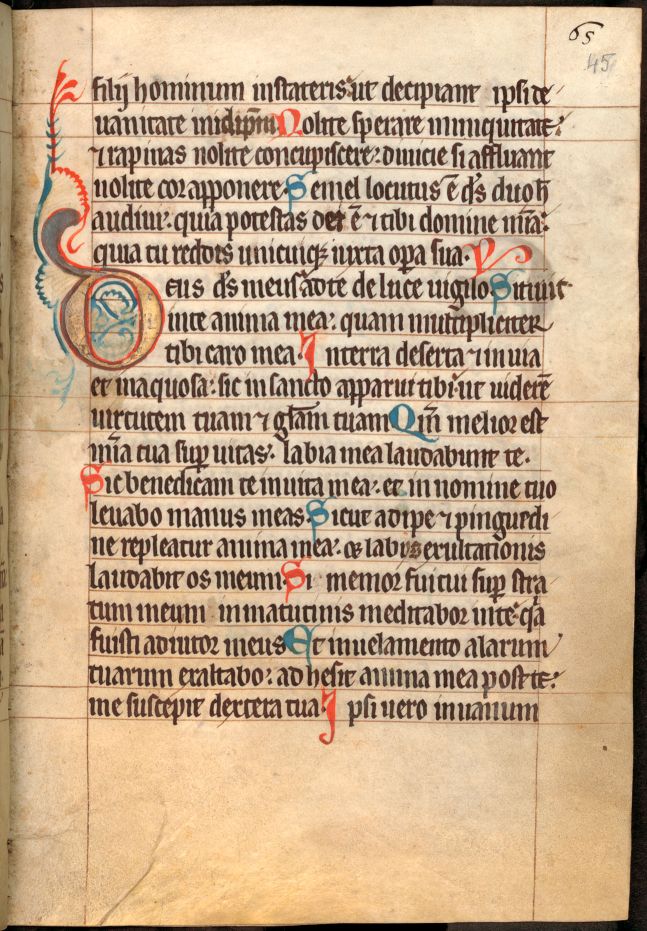 65
45
filij hominum instateris: ut decipiant ipsi de
uanitate inidip̄m Nolite sperare ininiquitate:
⁊ rapinas nolite concupiscere: diuicie si affluant
nolite cor apponere. Semel locutus ē d̄s duo h̄
audiui: quia potestas dei ē ⁊ tibi domine mīa:
quia tu reddis unicuiqꝫ iuxta oꝑa sua. V
Deus d̄s meus: ad te de luce uigilo Sitiuit
inte anima mea: quam multipliciter
tibi caro mea. In terra deserta ⁊ inuia
et inaquosa: sic in sancto apparui tibi: ut uiderē
uirtutem tuam ⁊ gl̄am tuam Qm̄ melior est
mīa tua suꝑ uitas: labia mea laudabunt te.
Sic benedicam te inuita mea: et in nomine tuo
leuabo manus meas. Sicut adipe ⁊ pinguedi
ne repleatur anima mea: ⁊ labiis exultationis
laudabit os meum. Si memor fui tui suꝑ stra
tum meum inmatutinis meditabor inte: q̄a
fuisti adiutor meus Et inuelamento alarum
tuarum exaltabo: adhesit anima mea post te:
me suscepit dextera tua. Ipsi uero inuanum